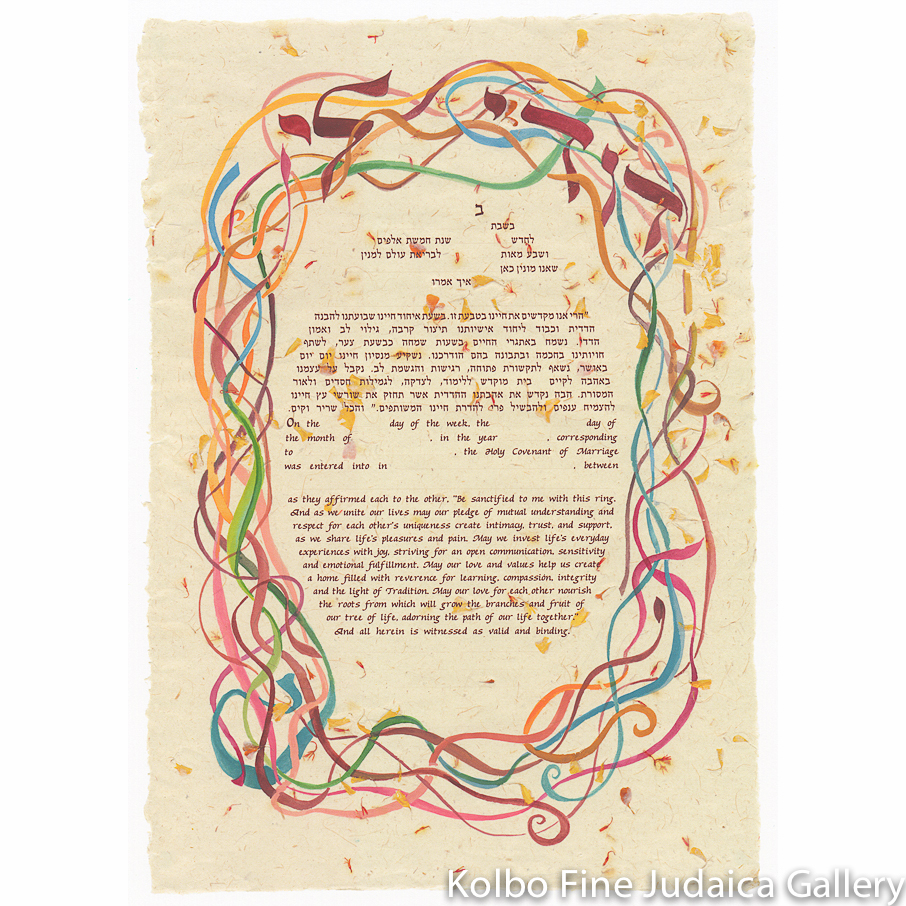 ב
בשבת
לחדש שנת חמשת אלפים
ושבע מאות לבריאת עולם למנין
שאנו מונין כאן
איך אמרו
"הרי אנו מקדשים את חיינו בטבעת זו. בשעת איחוד חיינו שבועתנו להבנה
הדדית וכבוד ליחוד אישיותנו תיצור קרבה, גילוי לב ואמון
הדדי. נשמח באתגרי החיים בשעות שמחה כבשעת צער, לשתף
חויותינו בחכמה ובתבונה בהם הודרכנו. נשקיע מנסיון חיינו יום יום
באושר, נשאף לתקשורת פתוחה, רגישות והגשמת לב. נקבל על עצמנו
באהבה לקיים בית מוקדש ללימוד, לצדקה, לגמילות חסדים ולאור
המסורת. הבה נקדש את אהבתנו ההדדית אשר תחזק את שורשי עץ חיינו
להצמיח ענפים ולהבשיל פרי להדרת חיינו המשותפים." והכל שריר וקים.
On the day of the week, the day of
the month of , in the year , corresponding
to , the Holy Covenant of Marriage
was entered into in , between
as they affirmed each to the other, "Be sanctified to me with this ring.
And as we unite our lives may our pledge of mutual understanding and
respect for each other's uniqueness create intimacy, trust, and support,
as we share life's pleasures and pain. May we invest life's everyday
experiences with joy, striving for an open communication, sensitivity
and emotional fulfillment. May our love and values help us create
a home filled with reverence for learning, compassion, integrity
and the light of Tradition. May our love for each other nourish
the roots from which will grow the branches and fruit of
our tree of life, adorning the path of our life together."
And all herein is witnessed as valid and binding.
Kolbo Fine Judaica Gallery